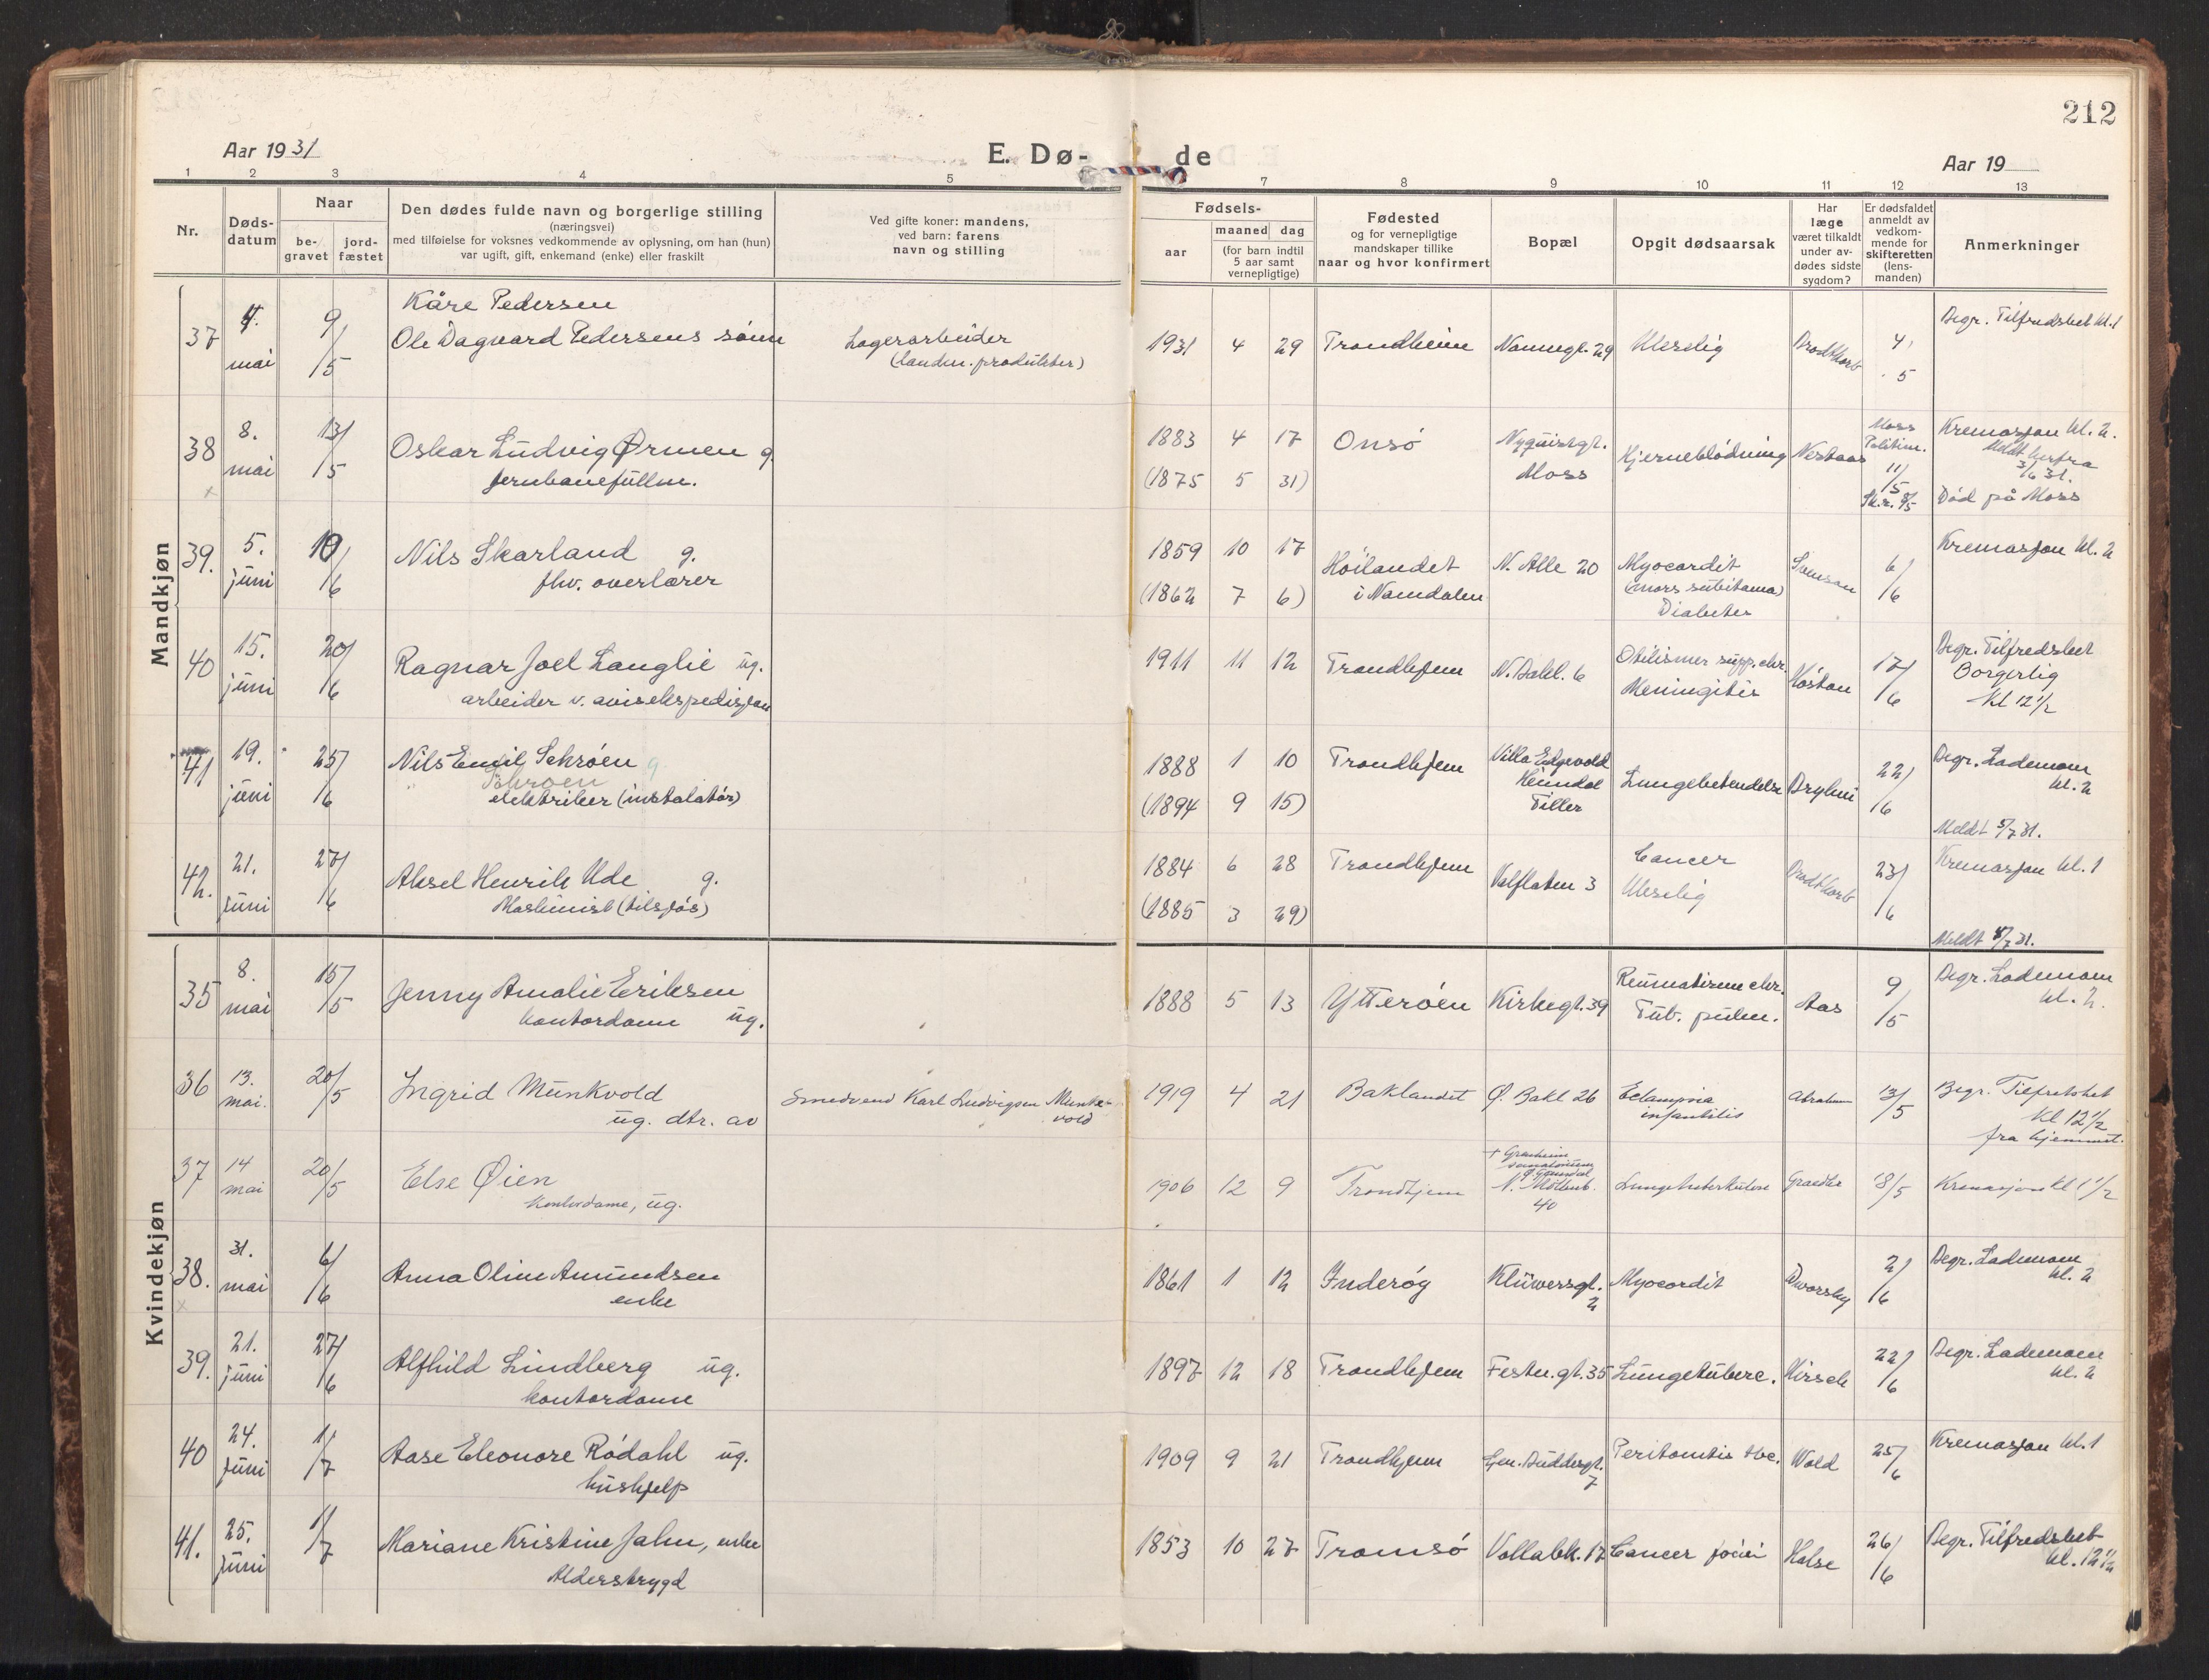 212
Aar 1931
E. Dø-
de
Aar 19
1 2 3 4 5 7 8 9 10 11 12 13
Nr.
Døds-
datum
Naar
be-
gravet
jord-
fæstet
Den dødes fulde navn og borgerlige stilling
(næringsvei)
med tilføielse for voksnes vedkommende av oplysning, om han (hun)
var ugift, gift, enkemand (enke) eller fraskilt
Ved gifte koner: mandens,
ved barn: farens
navn og stilling
Fødsels-
aar
maaned dag
(for barn indtil
5 aar samt
vernepligtige)
Fødested
og for vernepligtige
mandskaper tillike
naar og hvor konfirmert
Bopæl
Opgit dødsaarsak
Har
læge
været tilkaldt
under av-
dødes sidste
sygdom?
Er dødsfaldet
anmeldt av
vedkom-
mende for
skifteretten
(lens-
manden)
Anmerkninger
Mandkjøn
37 4. mai 9/5
Kåre Pedersen
Ole Dagvard Pedersens sønn
Lagerarbeider
(landm. produkter)
1931 4 29 Trondheim Nannagt. 29 Uleselig Brodtkorb 4/5
Begr. Tilfredshet kl. 1
38 8. mai 13/5
Oskar Ludvig Ørmen g.
Jernbanefullm.
1883 4 17
(1875 5 31)
Onsø
Nyquistgt.
Moss
Hjerneblødning Nestaas
Moss
Politim.
11/5
Sk.r. 8/5
Kremasjon kl. 2.
Meldt herfra
3/6 31.
Død på Moss
39. 5. juni 10/6
Nils Skarland g.
fhv. overlærer
1859 10 17
(1862 7 6)
Høilandet
i Namdalen
N. Alle 20
Myocardit
(mors subitanea)
Diabetes
Svenson 6/6
Kremasjon kl. 2
40 15. juni 20/6
Ragnar Joel Langlie ug.
arbeider v. avisekspedisjon
1911 11 12 Trondhjem N. Bakl. 6
supp. chr.
Meningitis
Høstan 17/6
Begr. Tilfredshet
Borgerlig
Kl 12 1/2
41 19. juni 25/6
Nils Emil Schrøen g
Schroen
elektriker (instalatør)
1888 1 10
(1894 9 15)
Trondhjem
Villa
Heimdal
Tiller
Lungebetendelse Bryhni 22/6
Begr. Lademoen
kl. 2
Meldt 5/7 31.
42. 21. juni 27/6
Aksel Henrik Ude g.
Maskinist (tilsjøs)
1884 6 28
(1885 3 29)
Trondhjem
Kalflaten 3
Cancer
Uleselig
Brodtkorb 23/6
Kremasjon kl. 1
Meldt 8/7 31.
Kvindekjøn
35 8. mai 15/5
Jenny Amalie Eriksen
kontordame ug.
1888 5 13 Ytterøen Kirkegt. 39
Reumatisme chr.
Tub. pulm.
Aas 9/5
Begr. Lademoen
kl. 2.
36 13. mai. 20/5
Ingrid Munkvold
ug. dtr. av
Smedsvend Karl Ludvigsen Munk-
vold
1919 4 21 Baklandet Ø. Bakl 26
Eclampsia
infantilis
Abraham 13/5
Begr. Tilfredshet
Kl 12 1/2
fra hjemmet.
37 14 mai 20/5
Else Øien
Kontordame, ug.
1906 12 9 Trondhjem
+ Grinheim
sanatorium
Ø. Gausdal
N. Møllenb.
40
Lungetuberkulose Graedler 18/5
Kremasjon kl 1 1/2
38. 31. mai 6/6
Anna Oline Amundsen
enke
1861 1 12 Inderøy
Klüwersgt.
2
Myocardit Dworsky 2/6
Begr. Lademoen
kl. 2
39. 21. juni 27/6
Alfhild Lindberg ug.
kontordame
1897 12 18 Trondhjem Festn.gt. 35 Lungetuberc. Hirsch 22/6
Begr. Lademoen
kl. 2
40 24. Juni 1/7
Aase Eleonore Rødahl ug.
hushjelp
1909 9 21 Trondhjem
Gen. Buddesgt.
7
Peritonitis tbc. Wold 25/6
Kremasjon kl. 1
41. 25. Juni 1/7
Mariane Kristine Jahn, enke
Alderstrygd
1853 10 27 Tromsø Vollabk. 17 Cancer Halse 26/6
Begr. Tilfredshet
kl. 12 1/2